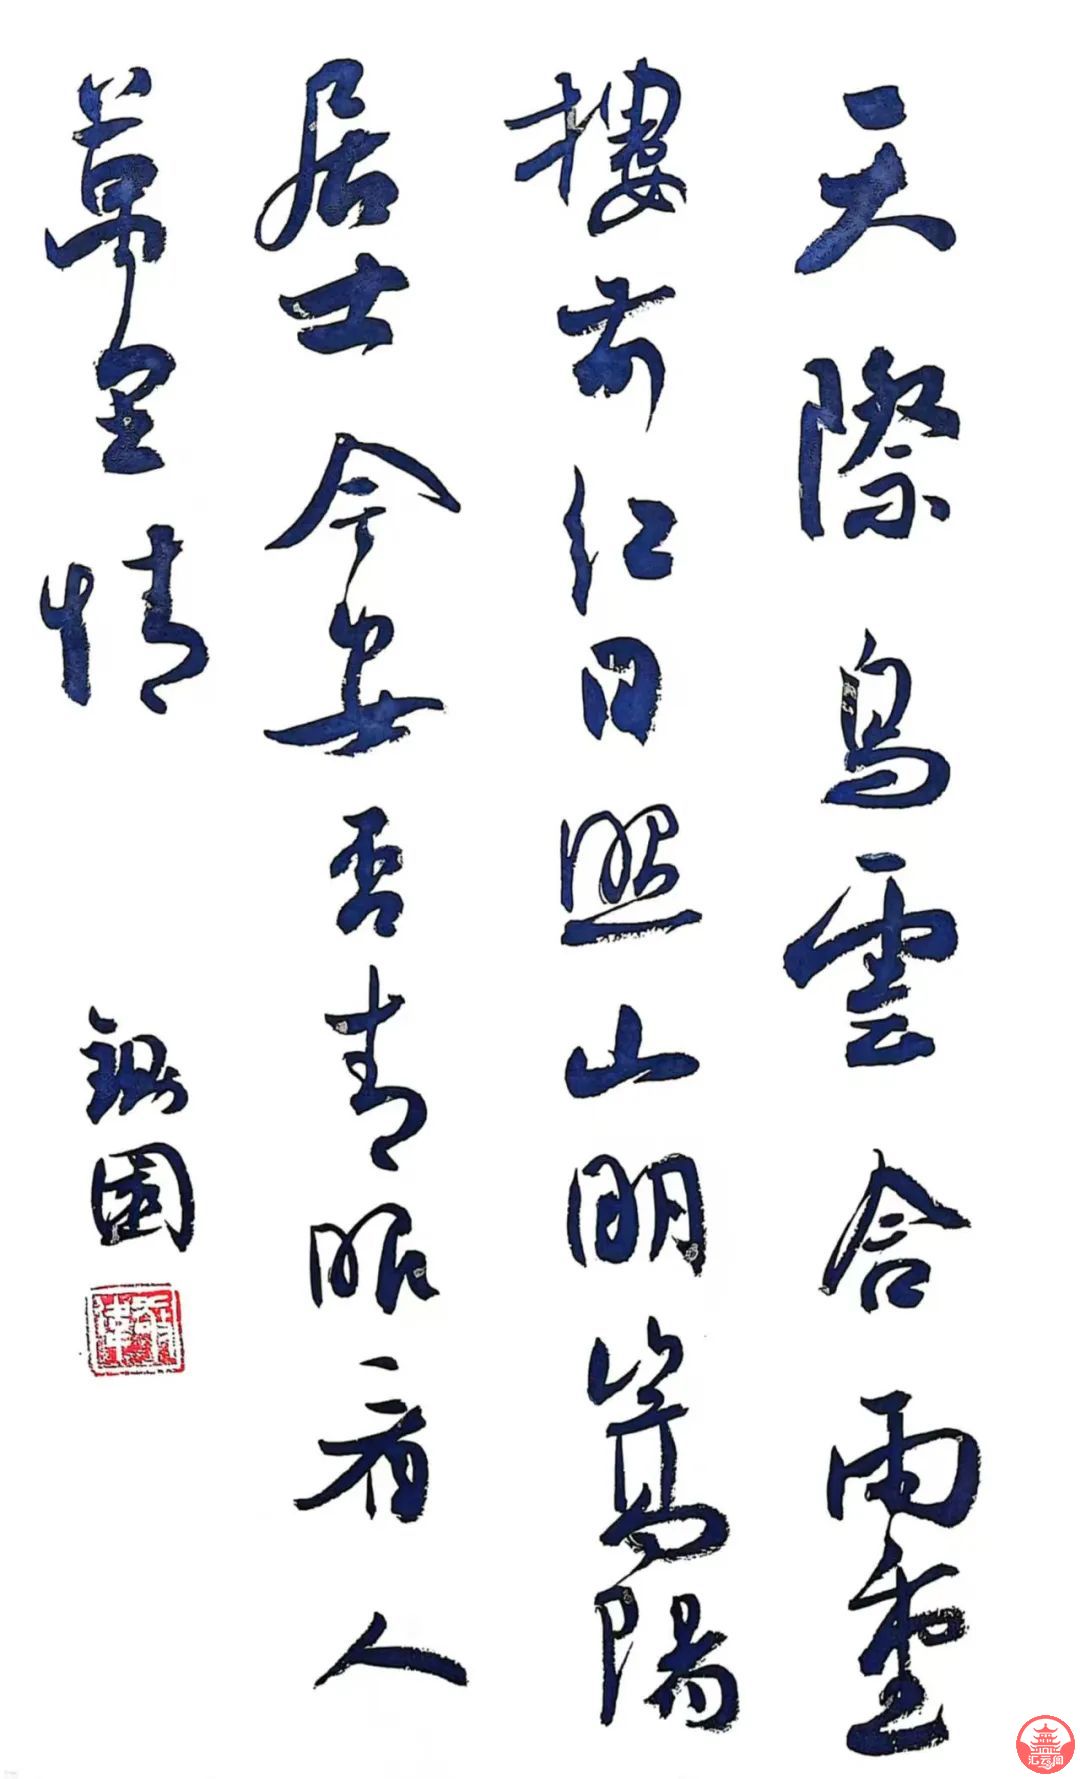 天際烏雲含雨重
樓前紅日照山明嵩陽
居士今安否青眼看人
萬里情
園
汇云阁